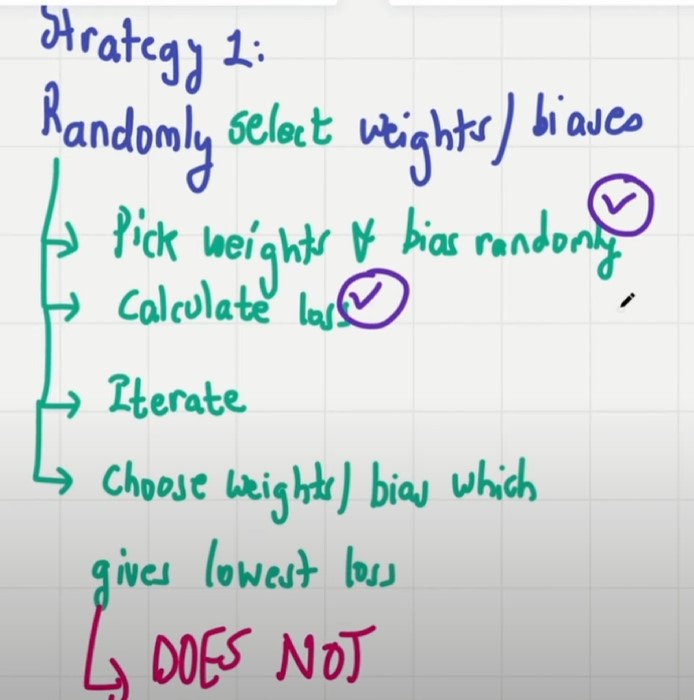 Strategy 1:
Randomly select weights/ biases
Pick weights & bias randomly
Calculate loss
Iterate
Choose weights/ bias which
gives lowest loss
DOES NOT